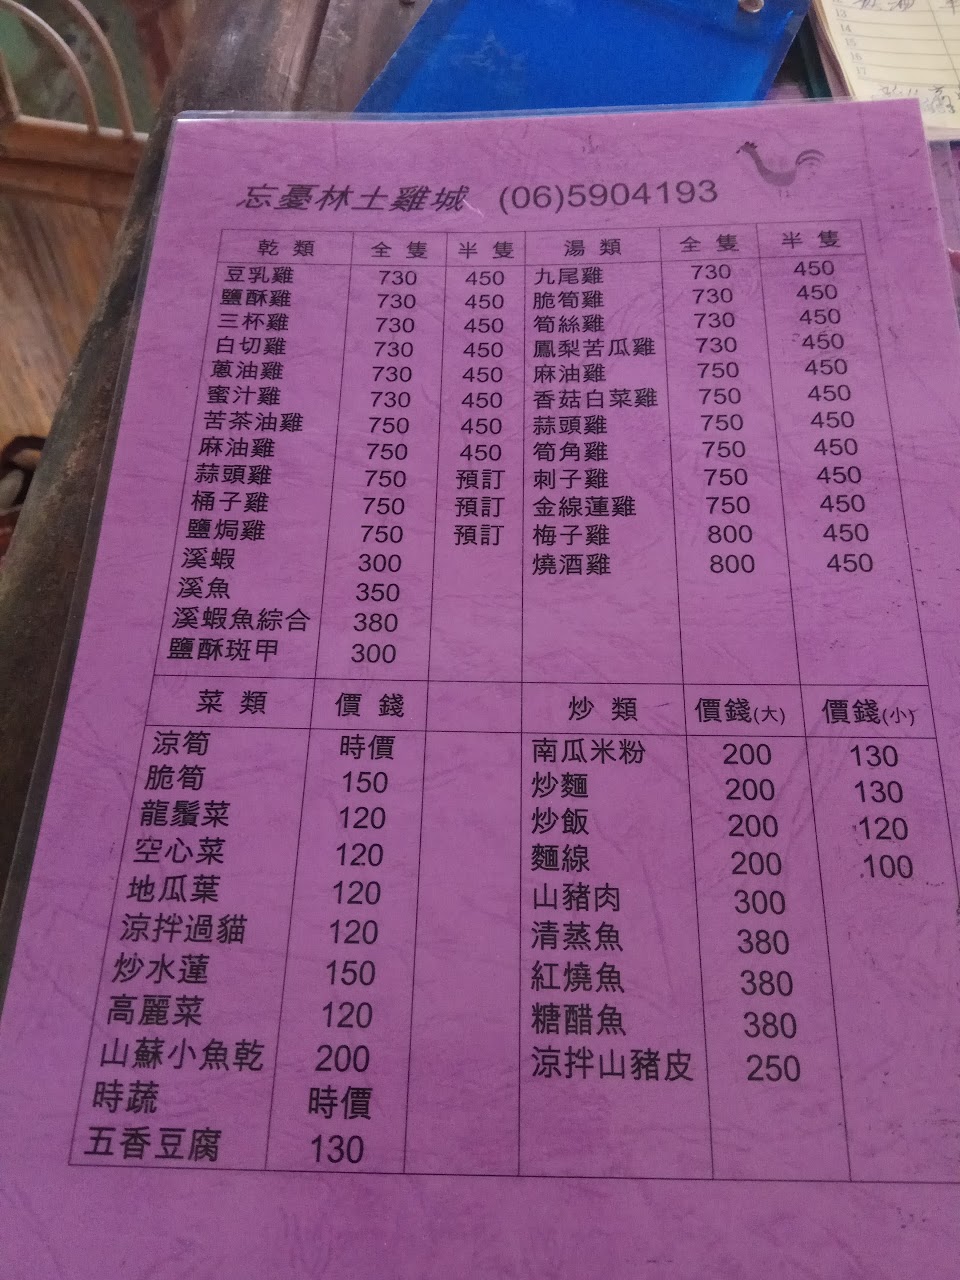 忘憂林土雞城 (06)5904193
乾 類 全 隻 半 隻 湯 類 全 隻 半 隻
豆乳雞 730 450 九尾雞 730 450
鹽酥雞 730 450 脆筍雞 730 450
三杯雞 730 450 筍絲雞 730 450
白切雞 730 450 鳳梨苦瓜雞 730 450
蔥油雞 730 450 麻油雞 750 450
蜜汁雞 730 450 香菇白菜雞 750 450
苦茶油雞 750 450 蒜頭雞 750 450
麻油雞 750 450 筍角雞 750 450
蒜頭雞 750 預訂 刺子雞 750 450
桶子雞 750 預訂 金線蓮雞 750 450
鹽焗雞 750 預訂 梅子雞 800 450
溪蝦 300 燒酒雞 800 450
溪魚 350
溪蝦魚綜合 380
鹽酥斑甲 300
菜 類 價 錢 炒 類 價錢(大) 價錢(小)
涼筍 時價 南瓜米粉 200 130
脆筍 150 炒麵 200 130
龍鬚菜 120 炒飯 200 120
空心菜 120 麵線 200 100
地瓜葉 120 山豬肉 300
涼拌過貓 120 清蒸魚 380
炒水蓮 150 紅燒魚 380
高麗菜 120 糖醋魚 380
山蘇小魚乾 200 涼拌山豬皮 250
時蔬 時價
五香豆腐 130
13
14
15
16
17